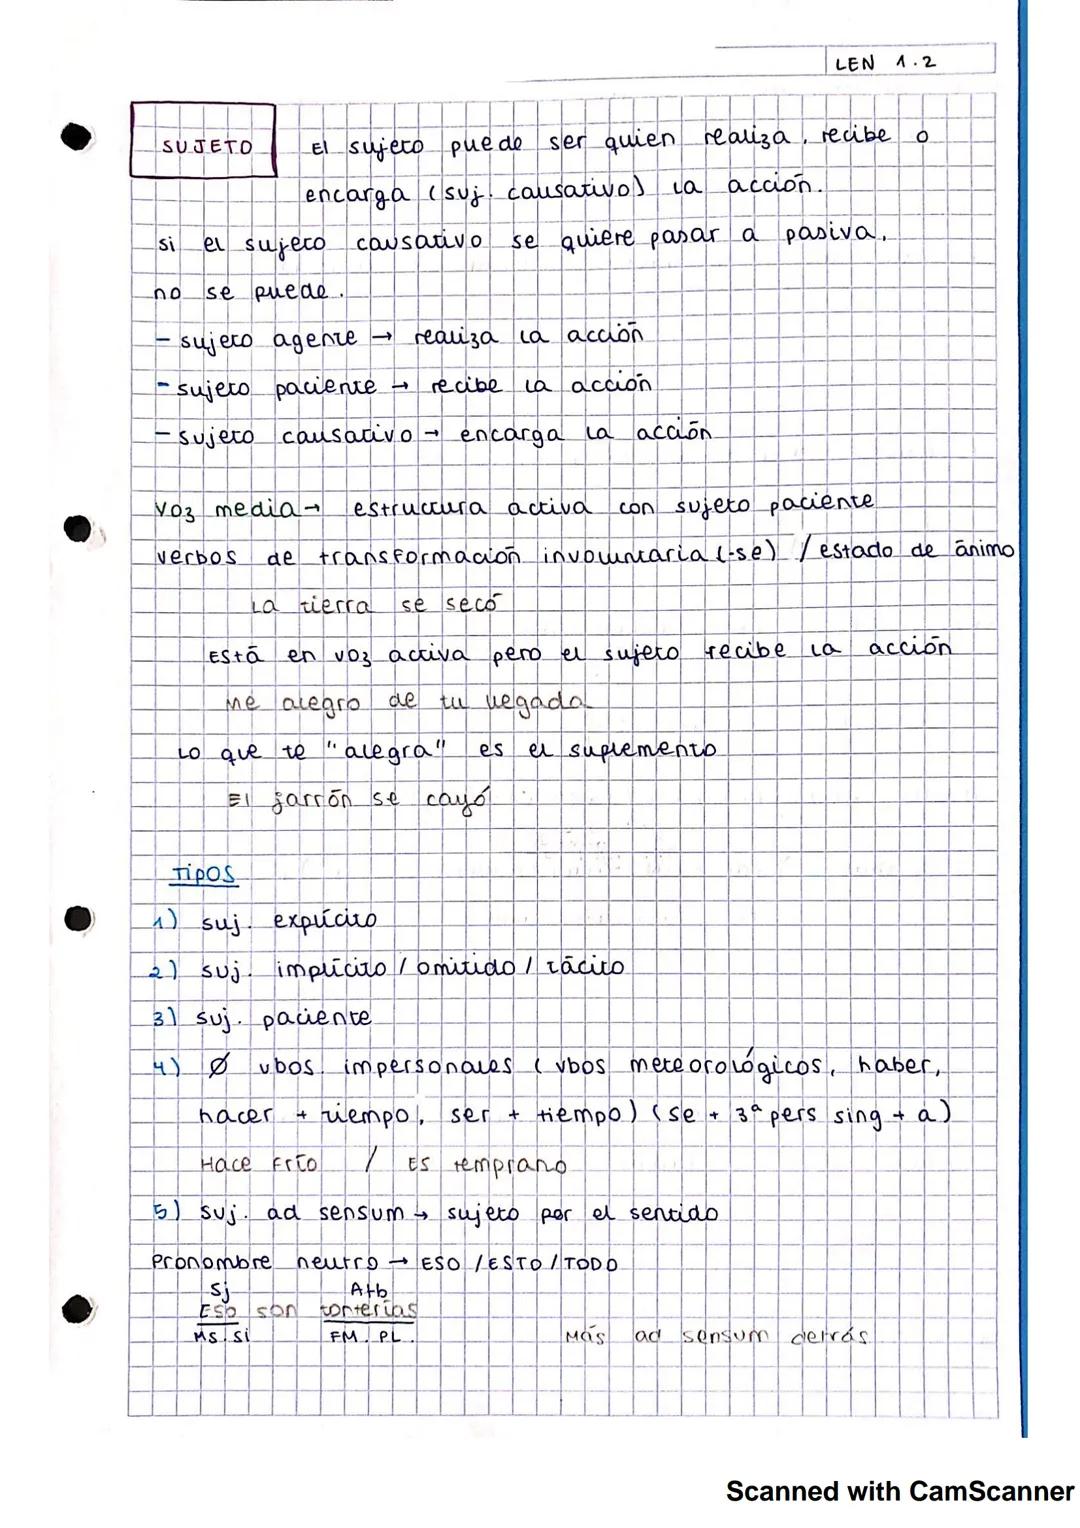 LEN 1.2
SUJETO
El sujeto puede ser quien realiza, recibe o
encarga (suj. causativo) la acción.
si el sujeto causativo se quiere pasar a pasiva,
no se puede.
- sujeto agente → realiza la acción
- sujeto paciente → recibe la acción
- sujeto causativo → encarga la acción
voz media → estructura activa con sujeto paciente
verbos de transformación involuntaria (-se) / estado de ánimo
La tierra se secó
Está en voz activa pero el sujeto recibe la acción
Me alegro de tu llegada
Lo que te "alegra" es el suplemento
El jarrón se cayó
TIPOS
1) suj. explícito
2) suj. implícito / omitido / tácito
3) suj. paciente
4) Ø vbos. impersonales (vbos meteorológicos, haber,
hacer + tiempo, ser + tiempo) (se + 3ª pers sing + a)
Hace frío / Es temprano
5) suj. ad sensum → sujeto por el sentido
Pronombre neutro → ESO / ESTO / TODO
Sj Atb
Eso son tonterías
MS. SI FM. PL.
Más ad sensum detrás
Scanned with CamScanner